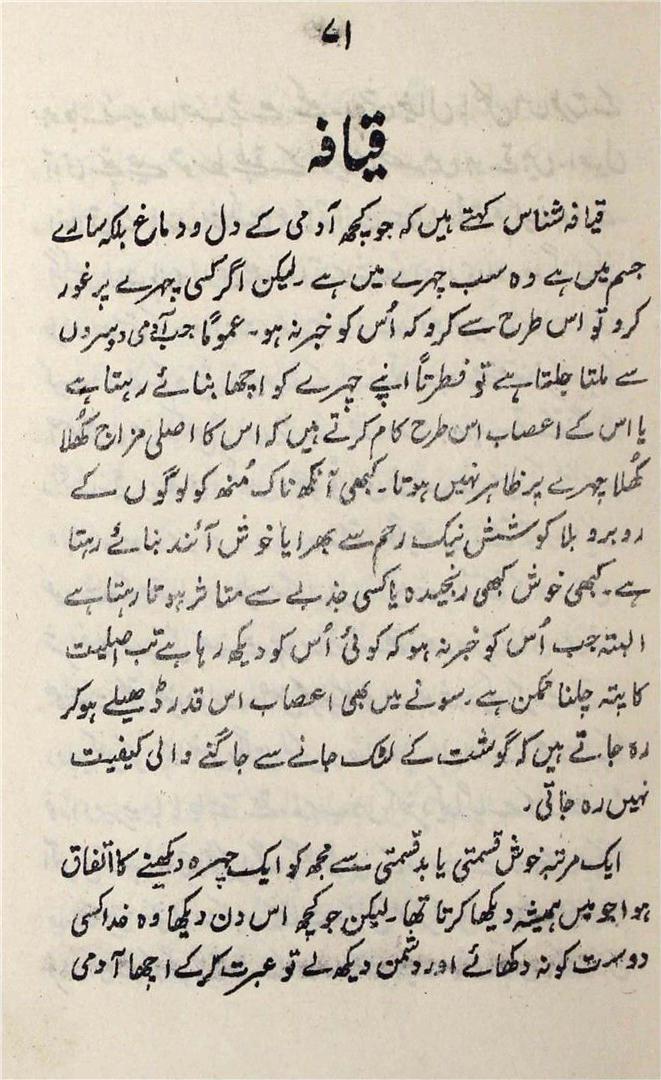 ۷۱
قیافہ
قیافہ شناس کہتے ہیں کہ جو کچھ آدمی کے دل و دماغ بلکہ سارے
جسم میں ہے وہ سب چہرے میں ہے۔ لیکن اگر کسی چہرے پر غور
کرو تو اس طرح سے کرو کہ اُس کو خبر نہ ہو۔ عموماً جب آدمی دوسروں
سے ملتا جلتا ہے تو فطرتاً اپنے چہرے کو اچھا بنائے رہتا ہے
یا اس کے اعصاب اس طرح کام کرتے ہیں کہ اس کا اصلی مزاج کھُلا
کھُلا چہرے پر ظاہر نہیں ہوتا۔ کبھی آنکھ ناک مُنھ کو لوگوں کے
روبرو بلا کوشش نیک رحم سے بھرا یا خوش آئند بنائے رہتا
ہے۔ کبھی خوش کبھی رنجیدہ یا کسی جذبے سے متاثر ہوتا رہتا ہے
البتہ جب اُس کو خبر نہ ہو کہ کوئی اُس کو دیکھ رہا ہے تب اصلیت
کا پتہ چلنا ممکن ہے۔ سونے میں بھی اعصاب اس قدر ڈھیلے ہو کر
رہ جاتے ہیں کہ گوشت کے لٹک جانے سے جاگنے والی کیفیت
نہیں رہ جاتی۔
ایک مرتبہ خوش قسمتی یا بدقسمتی سے مجھ کو ایک چہرہ دیکھنے کا اتفاق
ہوا جو میں ہمیشہ دیکھا کرتا تھا۔ لیکن جو کچھ اس دن دیکھا وہ خدا کسی
دوست کو نہ دکھائے اور دشمن دیکھ لے تو عبرت کر کے اچھا آدمی